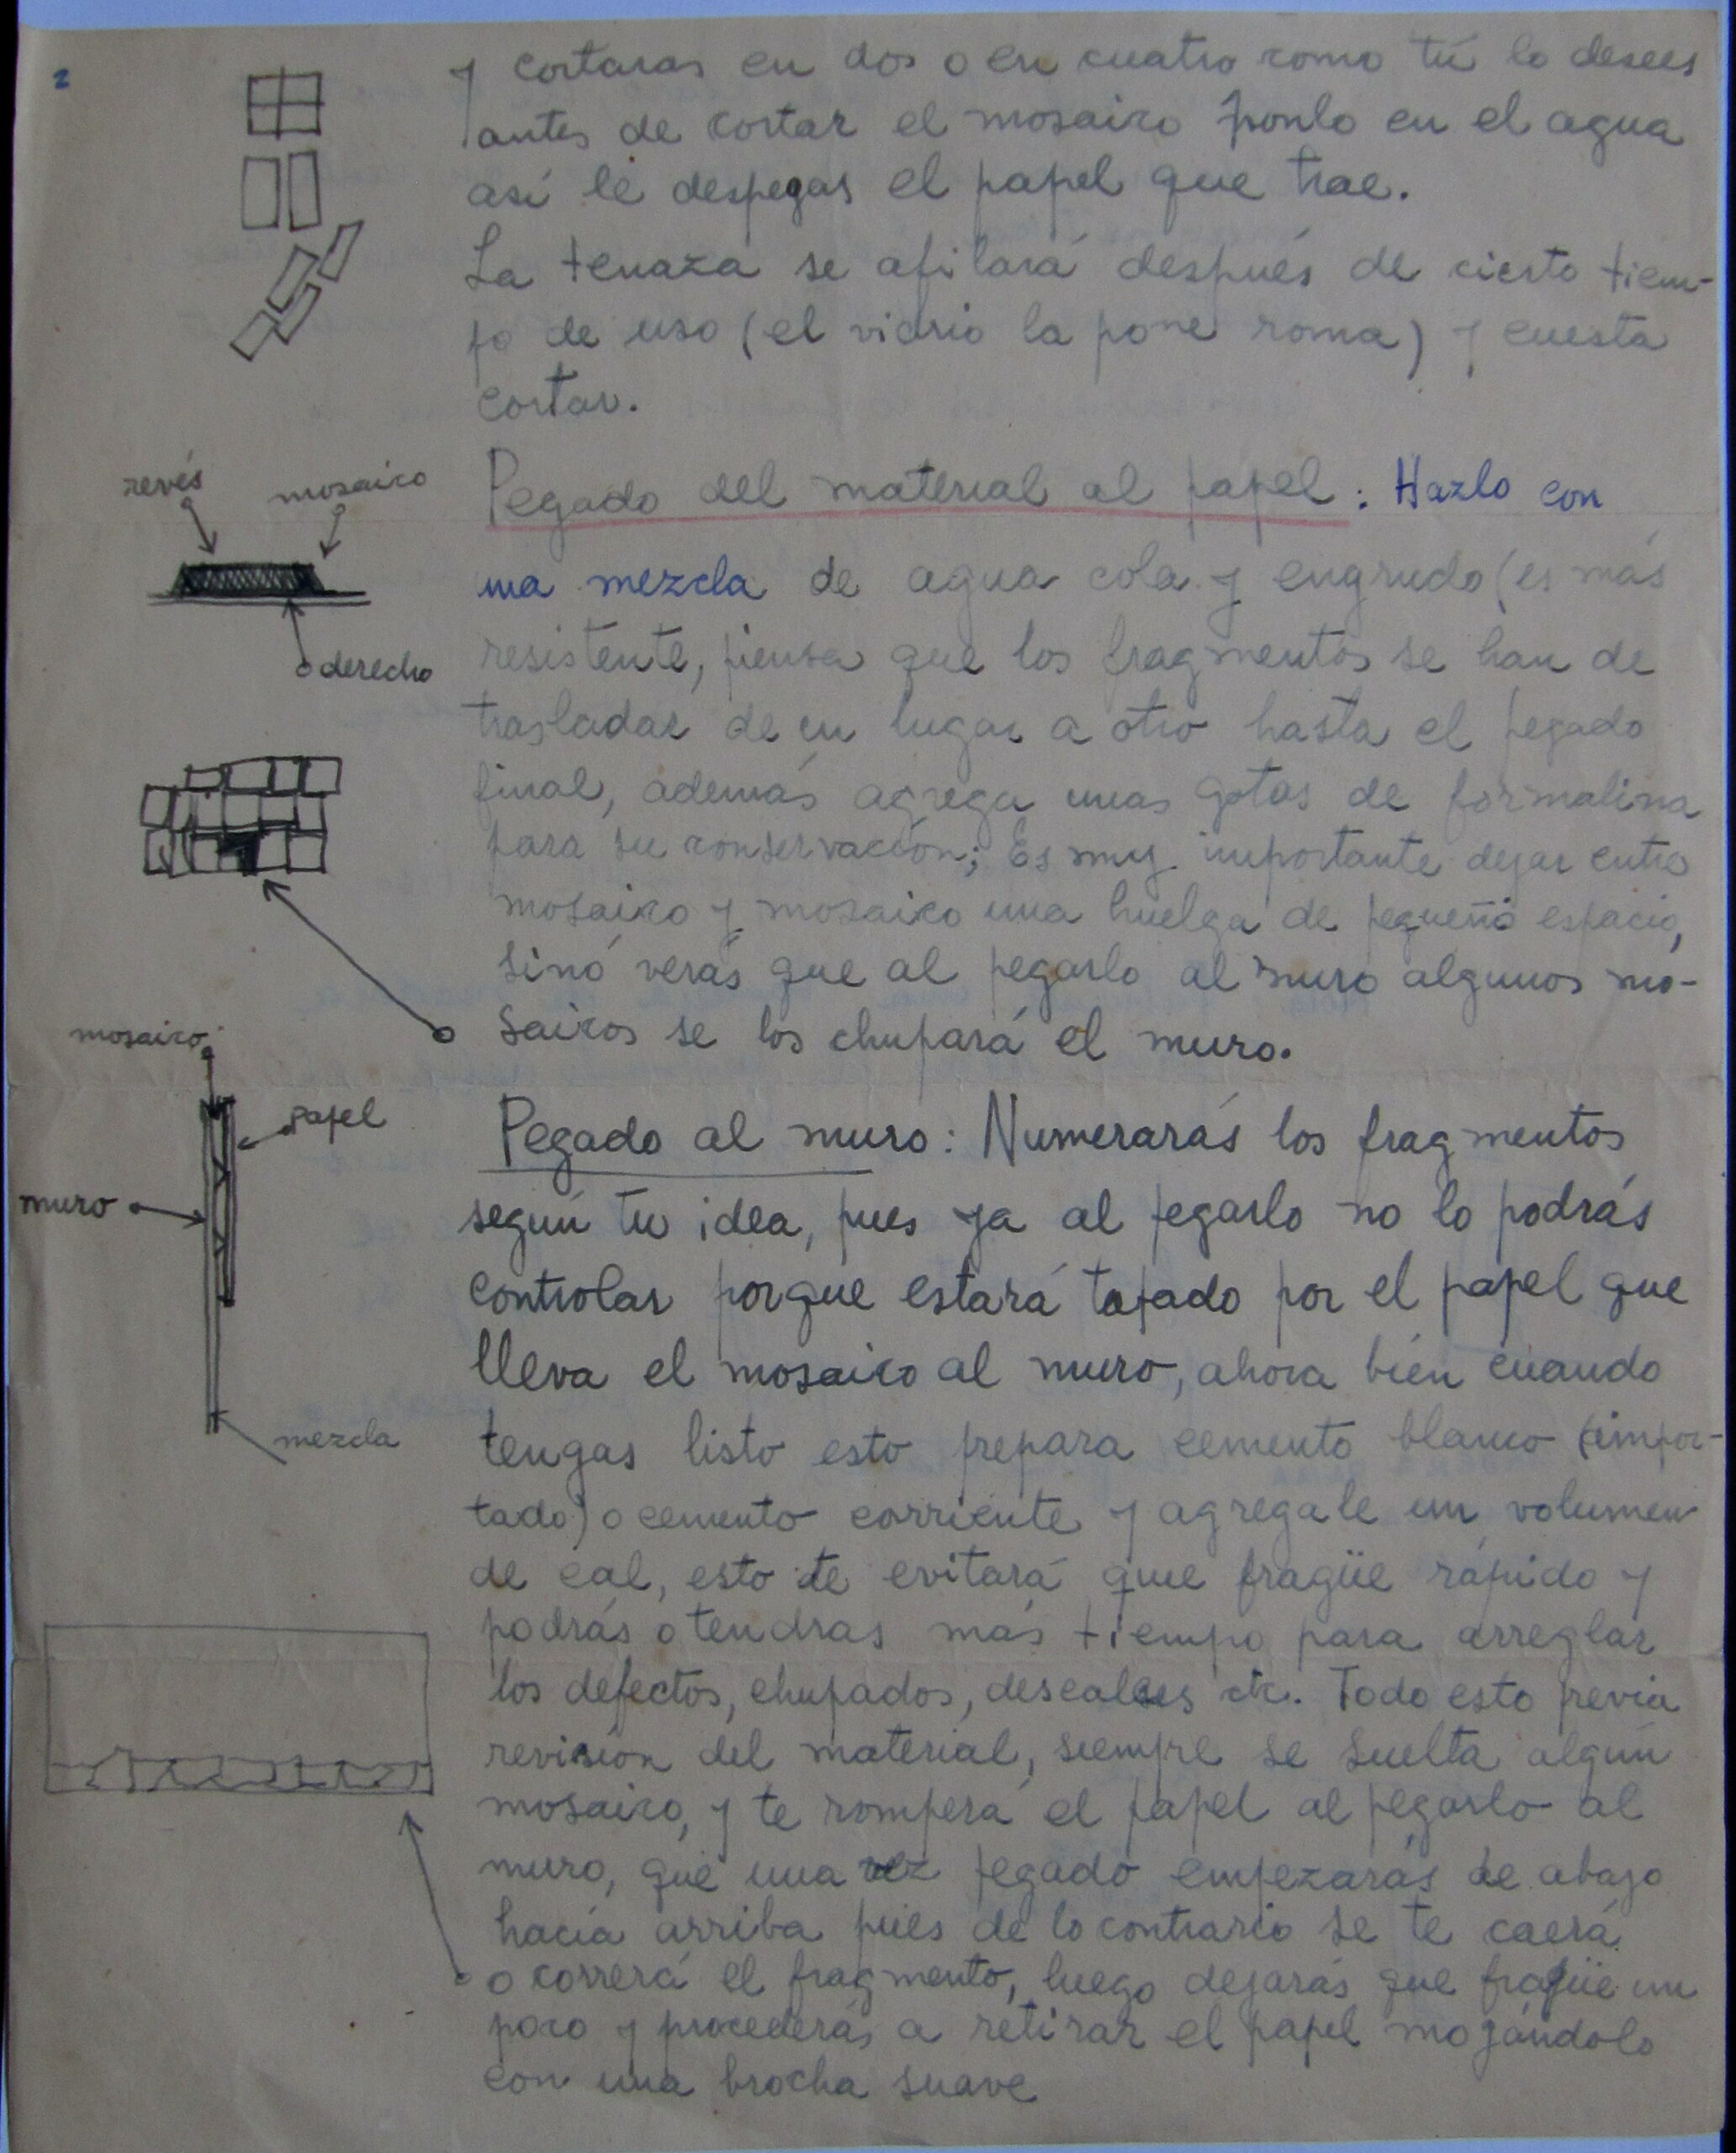 2
y cortaras en dos o en cuatro como tú lo desees
antes de cortar el mosaico ponlo en el agua
así le despegas el papel que trae.
La tenaza se afilará después de cierto tiem-
po de uso (el vidrio la pone roma) y cuesta
cortar.
revés
mosaico
derecho
Pegado del material al papel: Hazlo con
una mezcla de agua cola y engrudo (es más
resistente, piensa que los fragmentos se han de
trasladar de un lugar a otro hasta el pegado
final, además agrega unas gotas de formalina
para su conservación; Es muy importante dejar entre
mosaico y mosaico una huelga de pequeño espacio,
sinó verás que al pegarlo al muro algunos mo-
saicos se los chupará el muro.
mosaico
papel
muro
mezcla
Pegado al muro: Numerarás los fragmentos
según tu idea, pues ya al pegarlo no lo podrás
controlar porque estará tapado por el papel que
lleva el mosaico al muro, ahora bién cuando
tengas listo esto prepara cemento blanco (impor-
tado) o cemento corriente y agregale un volumen
de cal, esto te evitará que fragüe rápido y
podrás o tendras más tiempo para arreglar
los defectos, chupados, descalces etc. Todo esto previa
revisión del material, siempre se suelta algún
mosaico, y te romperá el papel al pegarlo al
muro, que una vez pegado empezarás de abajo
hacia arriba pues de lo contrario se te caerá
o correrá el fragmento, luego dejarás que fragüe un
poco y procederás a retirar el papel mojándolo
con una brocha suave